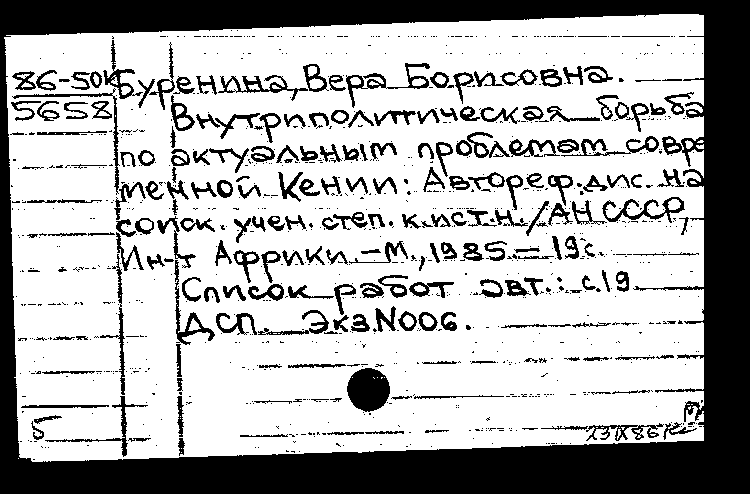 86-50к Буренина, Вера Борисовна.
5658 Внутриполитическая борьба
по актуальным проблемам совре-
менной Кении: Автореф. дис. на
соиск. учен. степ. к.ист.н. /АН СССР,
Ин-т Африки. – М., 1985. – 19 с.
Список работ авт.: с.19.
ДСП. Экз.N006.
Б
23 IX 86